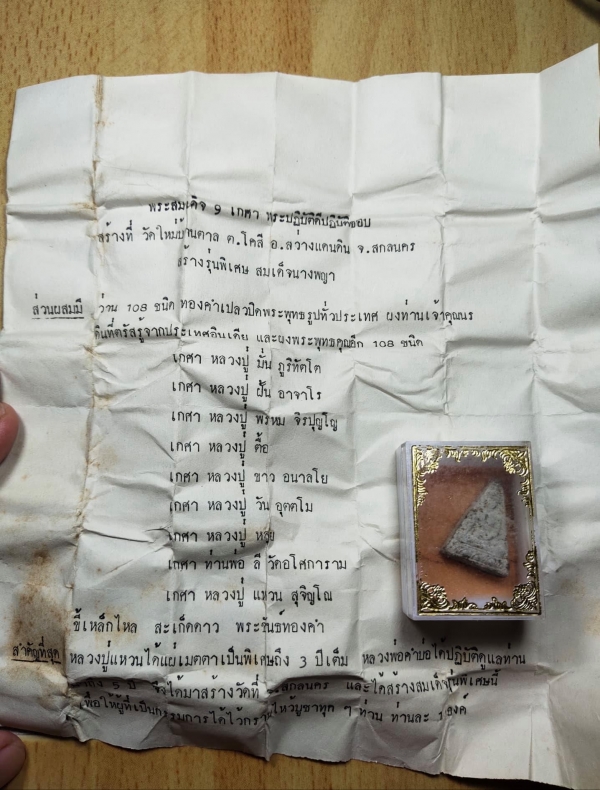 พระสมเด็จ 9 เกศา พระปฏิบัติดีปฏิบัติชอบ
สร้างที่ วัดใหม่บ้านตาล ต.โคสี อ.สว่างแดนดิน จ.สกลนคร
สร้างรุ่นพิเศษ สมเด็จนางพญา
ส่วนผสมมี ว่าน 108 ชนิด ทองคำเปลวปิดพระพุทธรูปทั่วประเทศ ผงท่านเจ้าคุณนร
ดินที่ตรัสรู้จากประเทศอินเดีย และผงพระพุทธคุณอีก 108 ชนิด
เกศา หลวงปู่ มั่น ภูริทัตโต
เกศา หลวงปู่ ฝั้น อาจาโร
เกศา หลวงปู่ พรหม จิรปุญโญ
เกศา หลวงปู่ ตื้อ
เกศา หลวงปู่ ขาว อนาลโย
เกศา หลวงปู่ วัน อุตตโม
เกศา หลวงปู่ หลุย
เกศา ท่านพ่อ ลี วัดอโศการาม
เกศา หลวงปู่ แหวน สุจิญโณ
ขี้เหล็กไหล สะเก็ดดาว พระขันธ์ทองคำ
สำคัญที่สุด หลวงปู่แหวนได้แผ่เมตตาเป็นพิเศษถึง 3 ปีเต็ม หลวงพ่อคำบ่อได้ปฏิบัติดูแลท่าน
ถึง 5 ปี จึงได้มาสร้างวัดที่ จ.สกลนคร และได้สร้างสมเด็จรุ่นพิเศษนี้
เพื่อให้ผู้ที่เป็นกรรมการได้ไว้กราบไหว้บูชาทุก ๆ ท่าน ท่านละ 1 องค์